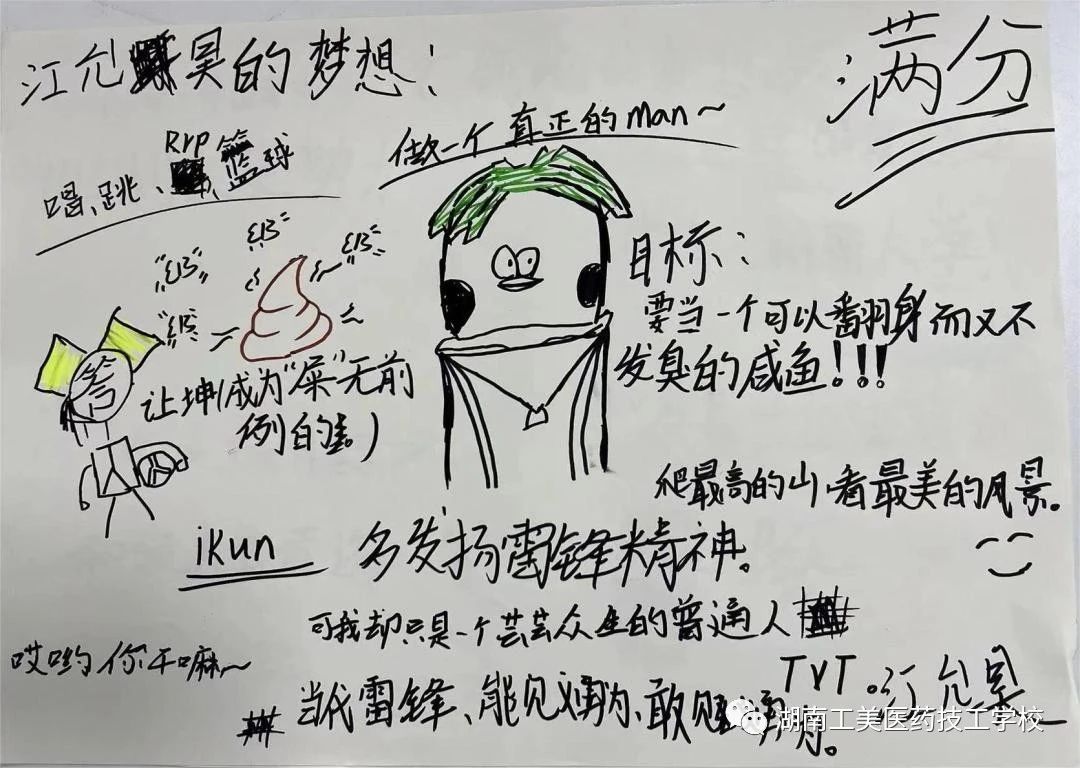 江允昊的梦想:
满分
做一个真正的man~
唱、跳、Rrp、篮球
目标:
要当一个可以翻身而又不
发臭的咸鱼!!!
让坤(成为"屎"无前
例的。)
爬最高的山,看最美的风景。
iKun
多发扬雷锋精神。
可我却只是一个芸芸众生的普通人
哎哟你干嘛~
TVT。江允昊
当代雷锋、能见义勇为、敢见
湖南工美医药技工学校